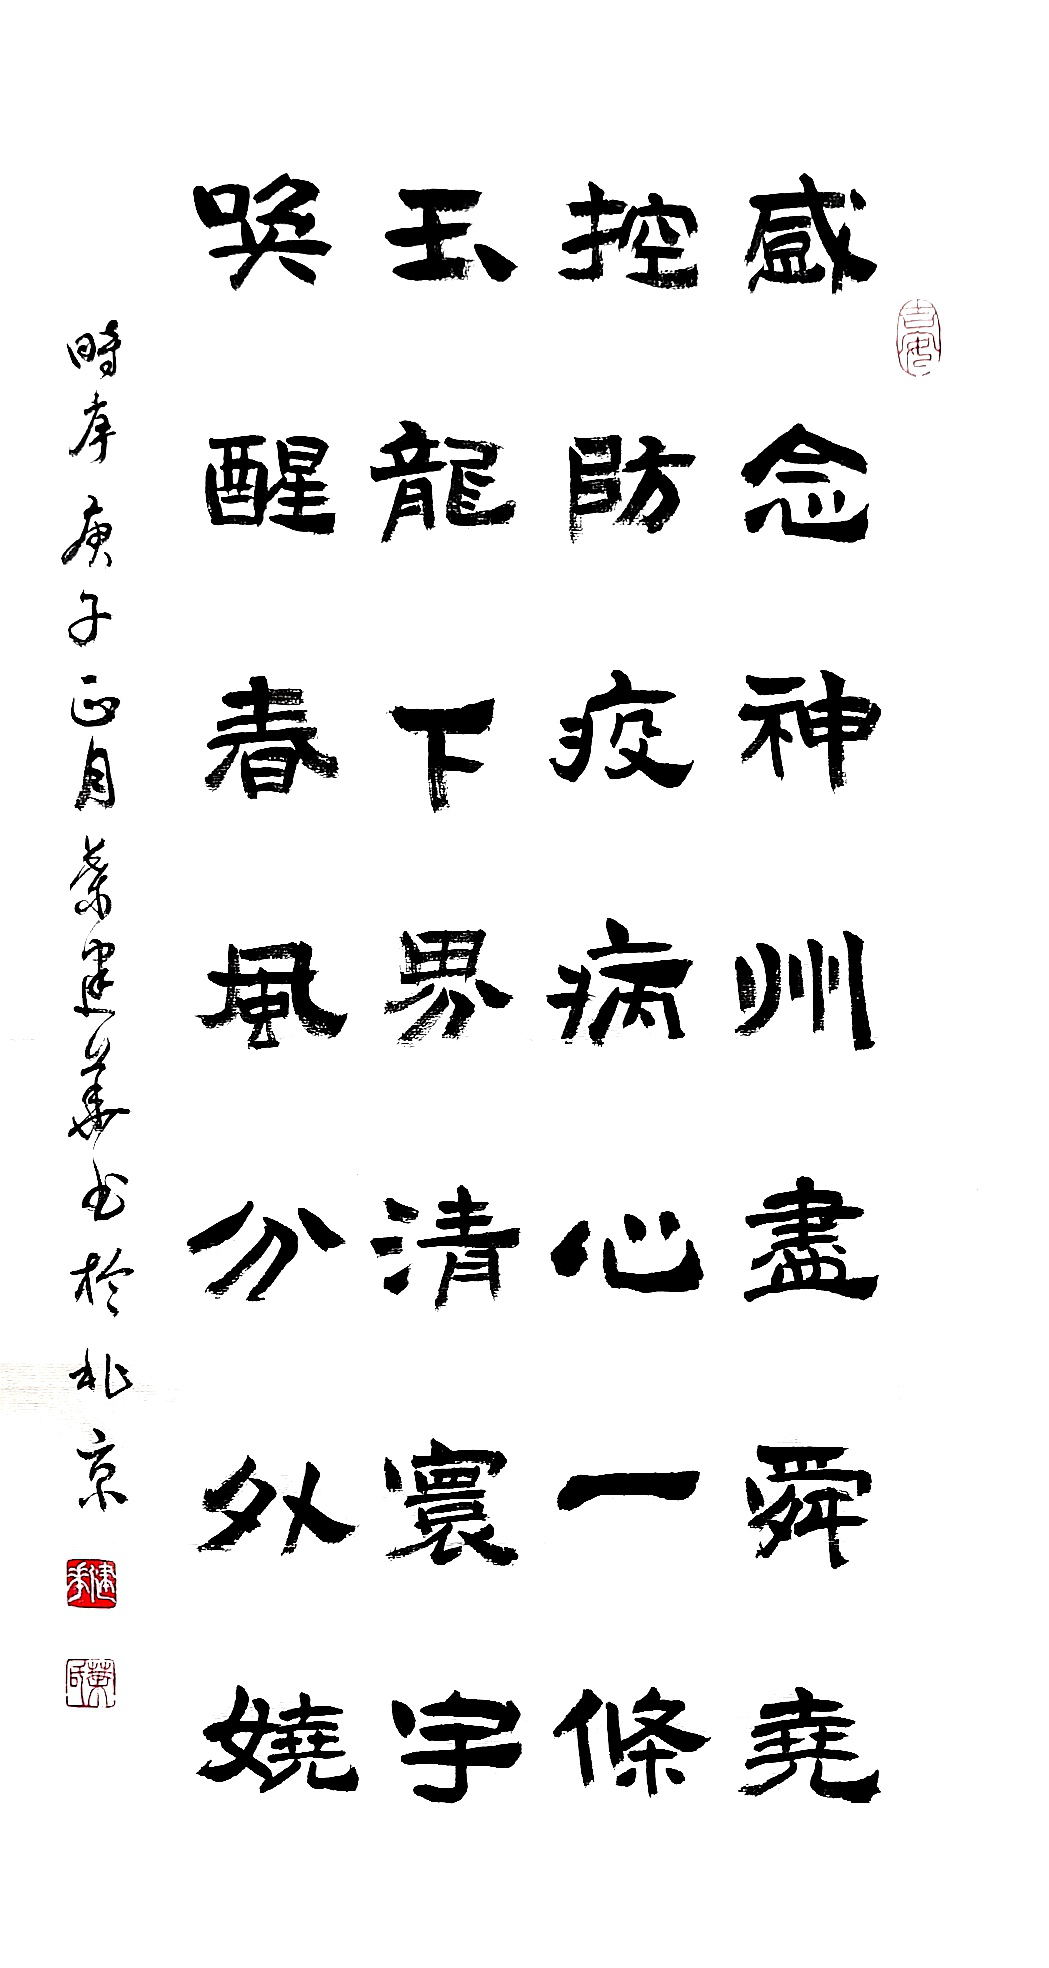 吉安
感念神州盡舜堯
控防疫病心一條
玉龍下界清寰宇
喚醒春風分外嬈
時在庚子正月葉建華书於北京
建華